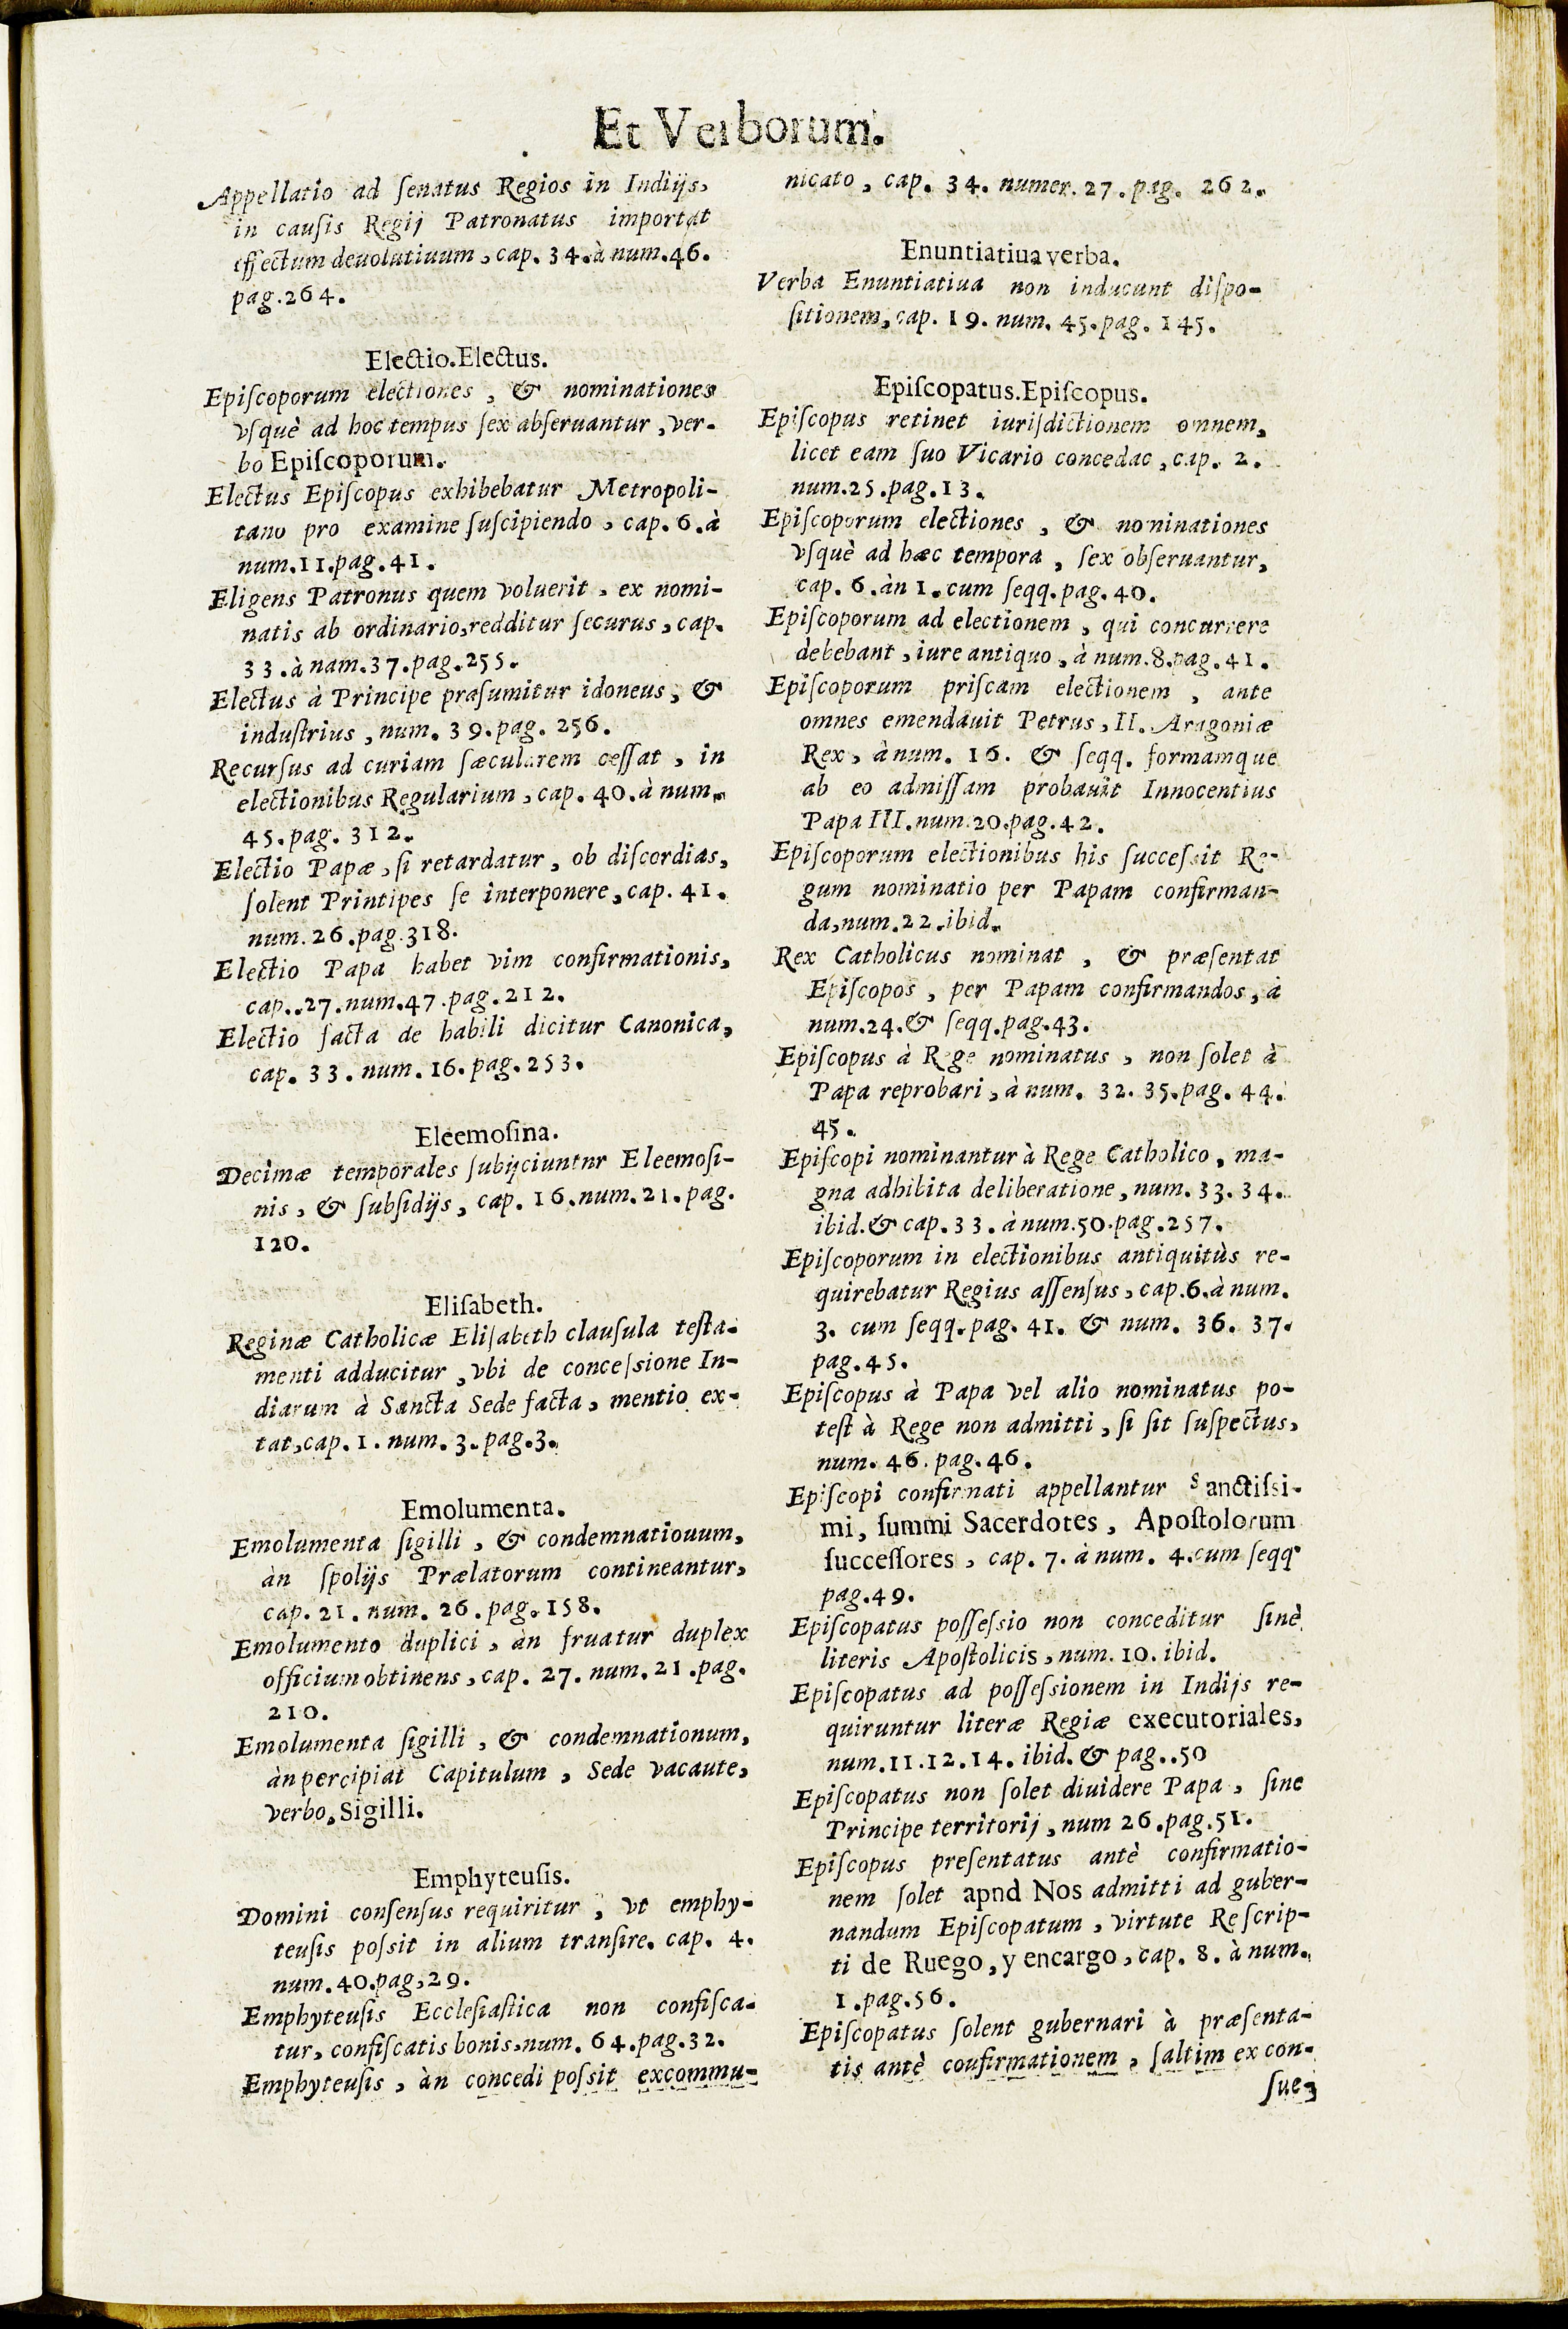 Et Verborum.
Appellatio ad ſenatus Regios in Indiĳs,
in cauſis Regĳ Patronatus importat
effectum deuolutiuum, cap. 34. à num. 46.
pag. 264.
Electio. Electus.
Epiſcoporum electiones, & nominationes
vſquè ad hoc tempus ſex abſeruantur, ver-
bo Epiſcoporum.
Electus Epiſcopus exhibebatur Metropoli-
tano pro examine ſuſcipiendo, cap. 6. à
num. 11. pag. 41.
Eligens Patronus quem voluerit, ex nomi-
natis ab ordinario, redditur ſecurus, cap.
33. à nam. 37. pag. 255.
Electus à Principe præſumitur idoneus, &
induſtrius, num. 39. pag. 256.
Recurſus ad curiam ſæcularem ceſſat, in
electionibus Regularium, cap. 40. à num.
45. pag. 312.
Electio Papæ, ſi retardatur, ob diſcordias,
ſolent Printipes ſe interponere, cap. 41.
num. 26. pag. 318.
Electio Papa habet vim confirmationis,
cap.. 27. num. 47. pag. 212.
Electio facta de habili dicitur Canonica,
cap. 33. num. 16. pag. 253.
Eleemoſina.
Decimæ temporales ſubĳciuntnr Eleemoſi-
nis, & ſubſidĳs, cap. 16. num. 21. pag.
120.
Eliſabeth.
Reginæ Catholicæ Eliſabeth clauſula teſta-
menti adducitur, vbi de conceſsione In-
diarum à Sancta Sede facta, mentio ex-
tat, cap. 1. num. 3. pag. 3.
Emolumenta.
Emolumenta ſigilli, & condemnatiouum,
àn ſpolĳs Prælatorum contineantur,
cap. 21. num. 26. pag. 158.
Emolumento duplici, àn fruatur duplex
officium obtinens, cap. 27. num. 21. pag.
210.
Emolumenta ſigilli, & condemnationum,
àn percipiat Capitulum, Sede vacaute,
verbo, Sigilli.
Emphyteuſis.
Domini conſenſus requiritur, vt emphy-
teuſis poſsit in alium tranſire. cap. 4.
num. 40. pag, 29.
Emphyteuſis Eccleſiaſtica non confiſca-
tur, confiſcatis bonis, num. 64. pag. 32.
Emphyteuſis, àn concedi poſsit excommu-
nicato, cap. 34. numer. 27. pag. 262.
Enuntiatiua verba.
Verba Enuntiatiua non inducunt diſpo-
ſitionem, cap. 19. num. 45. pag. 145.
Epiſcopatus. Epiſcopus.
Epiſcopus retinet iuriſdictionem omnem,
licet eam ſuo Vicario concedac, cap. 2.
num. 25. pag. 13.
Epiſcoporum electiones, & nominationes
vſquè ad hæc tempora, ſex obſeruantur,
cap. 6. àn 1. cum ſeqq. pag. 40.
Epiſcoporum ad electionem, qui concurrere
debebant, iure antiquo, à num. 8. pag. 41.
Epiſcoporum priſcam electionem, ante
omnes emendauit Petrus, II. Aragoniæ
Rex, à num. 16. & ſeqq. formamque
ab eo admiſſam probauit Innocentius
Papa III. num. 20. pag. 42.
Epiſcoporum electionibus his ſucceſsit Re-
gum nominatio per Papam confirman-
da, num. 22. ibid.
Rex Catholicus nominat, & præſentat
Epiſcopos, per Papam confirmandos, à
num. 24. & ſeqq. pag. 43.
Epiſcopus à Rege nominatus, non ſolet à
Papa reprobari, à num. 32. 35. pag. 44.
45.
Epiſcopi nominantur à Rege Catholico, ma-
gna adhibita deliberatione, num. 33. 34.
ibid. & cap. 33. à num. 50. pag. 257.
Epiſcoporum in electionibus antiquitùs re-
quirebatur Regius aſſenſus, cap. 6. à num.
3. cum ſeqq. pag. 41. & num. 36. 37.
pag. 45.
Epiſcopus à Papa vel alio nominatus po-
teſt à Rege non admitti, ſi ſit ſuſpectus,
num. 46. pag. 46.
Epiſcopi confirmati appellantur Sanctiſsi-
mi, ſummi Sacerdotes, Apoſtolorum
ſucceſſores, cap. 7. à num. 4. cum ſeqq.
pag. 49.
Epiſcopatus poſſeſsio non conceditur ſinè
literis Apoſtolicis, num. 10. ibid.
Epiſcopatus ad poſſeſsionem in Indĳs re-
quiruntur literæ Regiæ executoriales,
num. 11. 12. 14. ibid. & pag.. 50
Epiſcopatus non ſolet diuidere Papa, ſine
Principe territorĳ, num 26. pag. 51.
Epiſcopus preſentatus antè confirmatio-
nem ſolet apnd Nos admitti ad guber-
nandum Epiſcopatum, virtute Reſcrip-
ti de Ruego, y encargo, cap. 8. à num.
1. pag. 56.
Epiſcopatus ſolent gubernari à præſenta-
tis antè coufirmationem, ſaltim ex con-
ſue-